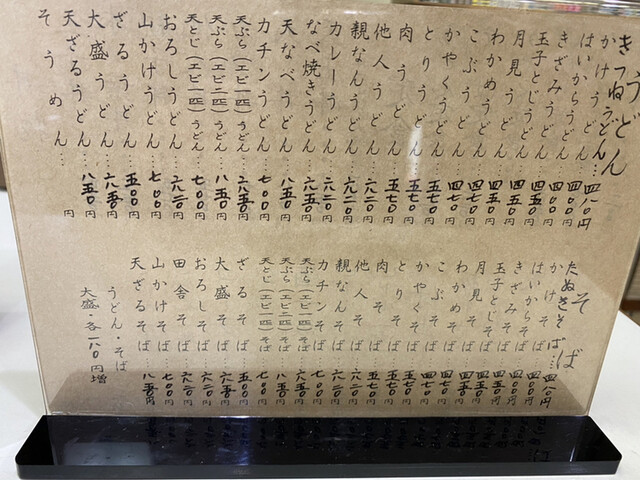 うどん
きつねうどん…四八〇円
かけうどん…四〇〇円
はいからうどん…四〇〇円
きざみうどん…四〇〇円
玉子とじうどん…四五〇円
月見うどん…四五〇円
わかめうどん…四五〇円
こぶうどん…四七〇円
かやくうどん…四七〇円
とりうどん…五七〇円
肉うどん…五七〇円
他人うどん…六二〇円
親なんうどん…六二〇円
カレーうどん…六二〇円
なべ焼きうどん…六五〇円
天なべうどん…八五〇円
カチンうどん…七〇〇円
天ぷら(エビ一匹)うどん…六五〇円
天ぷら(エビ二匹)うどん…八五〇円
天とじ(エビ一匹)うどん…七〇〇円
おろしうどん…六二〇円
山かけうどん…七〇〇円
ざるうどん…五〇〇円
大盛うどん…六五〇円
天ざるうどん…八五〇円
そうめん…円
そば
たぬきそば…四八〇円
かけそば…四〇〇円
はいからそば…四〇〇円
きざみそば…四〇〇円
玉子とじそば…四五〇円
月見そば…四五〇円
わかめそば…四五〇円
こぶそば…四七〇円
かやくそば…四七〇円
とりそば…五七〇円
肉そば…五七〇円
他人そば…六二〇円
親なんそば…六二〇円
カチンそば…七〇〇円
天ぷら(エビ一匹)そば…六五〇円
天ぷら(エビ二匹)そば…八五〇円
天とじ(エビ一匹)そば…七〇〇円
ざるそば…五〇〇円
大盛そば…六五〇円
おろしそば…六二〇円
田舎そば…六二〇円
山かけそば…七〇〇円
天ざるそば…八五〇円
うどん・そば
大盛・各一八〇円増